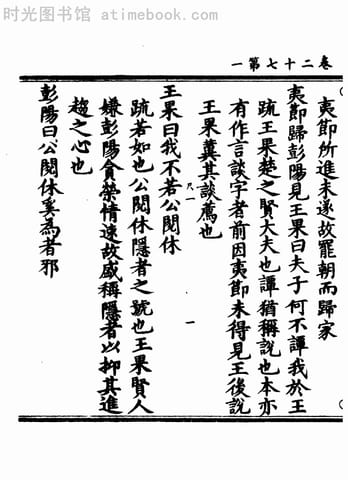 时光图书馆 - www.atimebook.com
卷二十七第一
夷節所進未遂故罷朝而歸家
夷節歸彭陽見王果曰夫子何不譚我於王
疏王果楚之賢大夫也譚猶稱說也本亦
有作言談字者前因夷節未得見王後說
王果冀其談薦也
王果曰我不若公閱休
疏若如也公閱休隱者之號也王果賢人
嫌彭陽貪榮情速故盛稱隱者以抑其進
趨之心也
彭陽曰公閱休奚為者邪
尺一
一